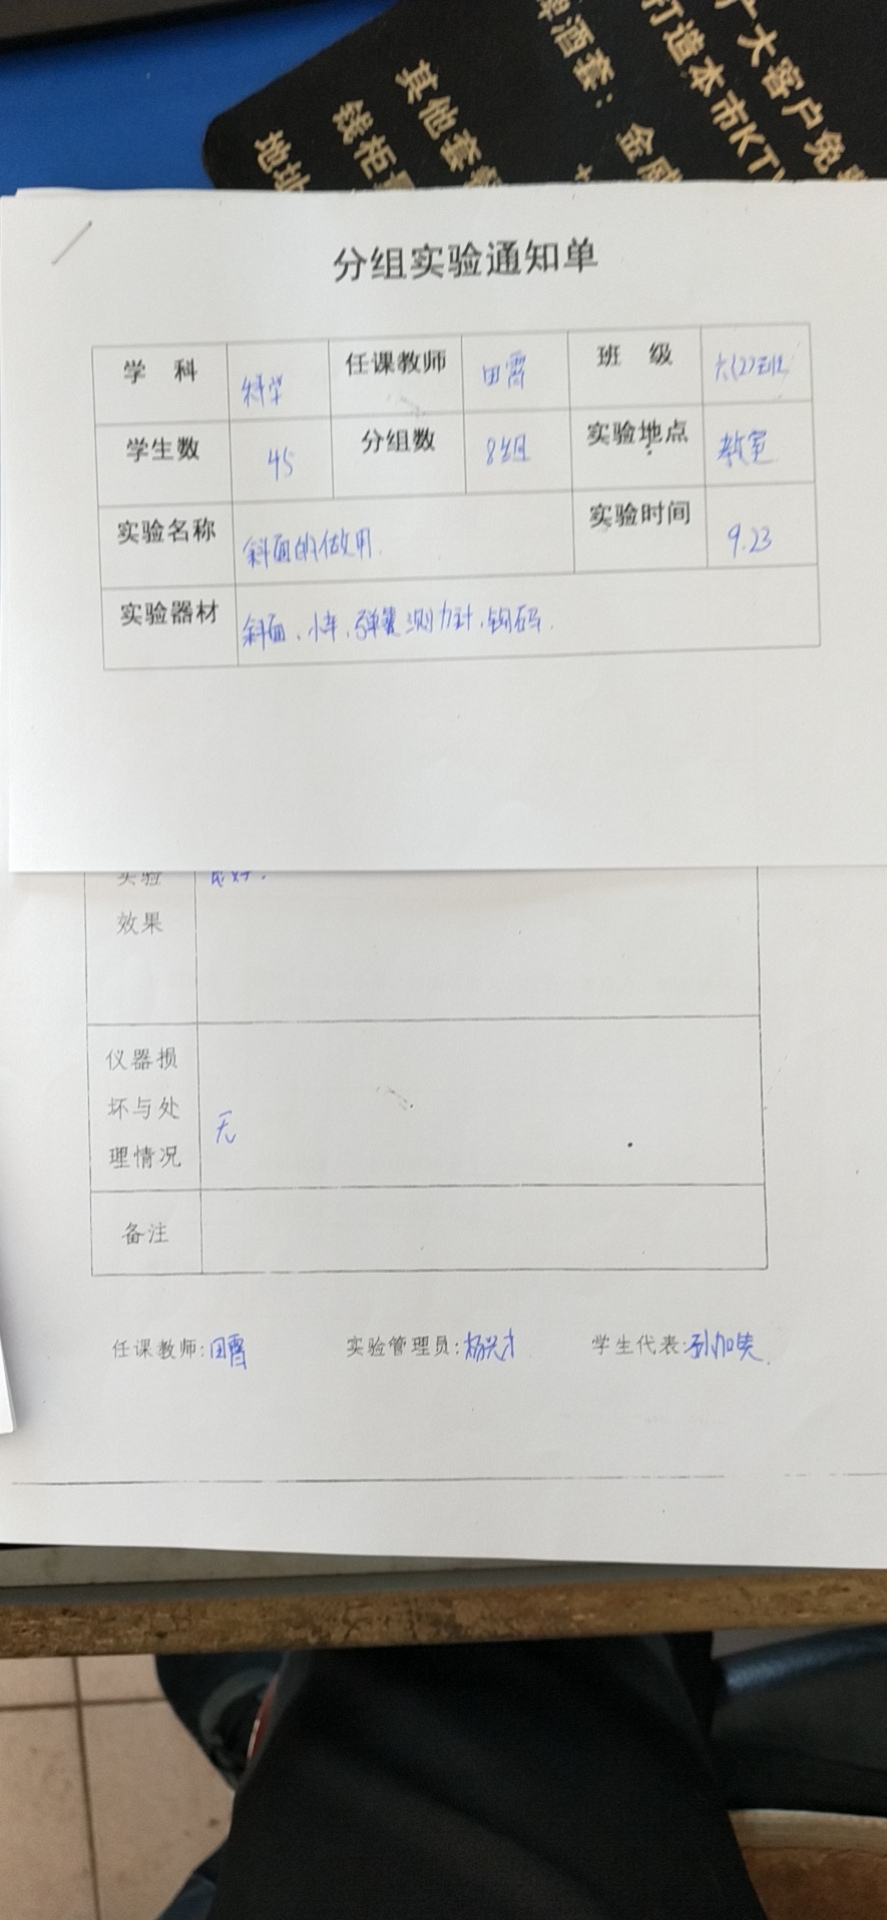 广大客户免
打造本市KTV
啤酒套：金威
其他套餐
钱柜
地址
分组实验通知单
学 科 科学 任课教师 田霄 班 级 六(2)班
学生数 45 分组数 8组 实验地点 教室
实验名称 斜面的做用. 实验时间 9.23
实验器材 斜面、小车、弹簧测力计、钩码.
实验
效果
良好.
仪器损
坏与处
理情况
无
备注
任课教师:田霄 实验管理员:杨兴才 学生代表: